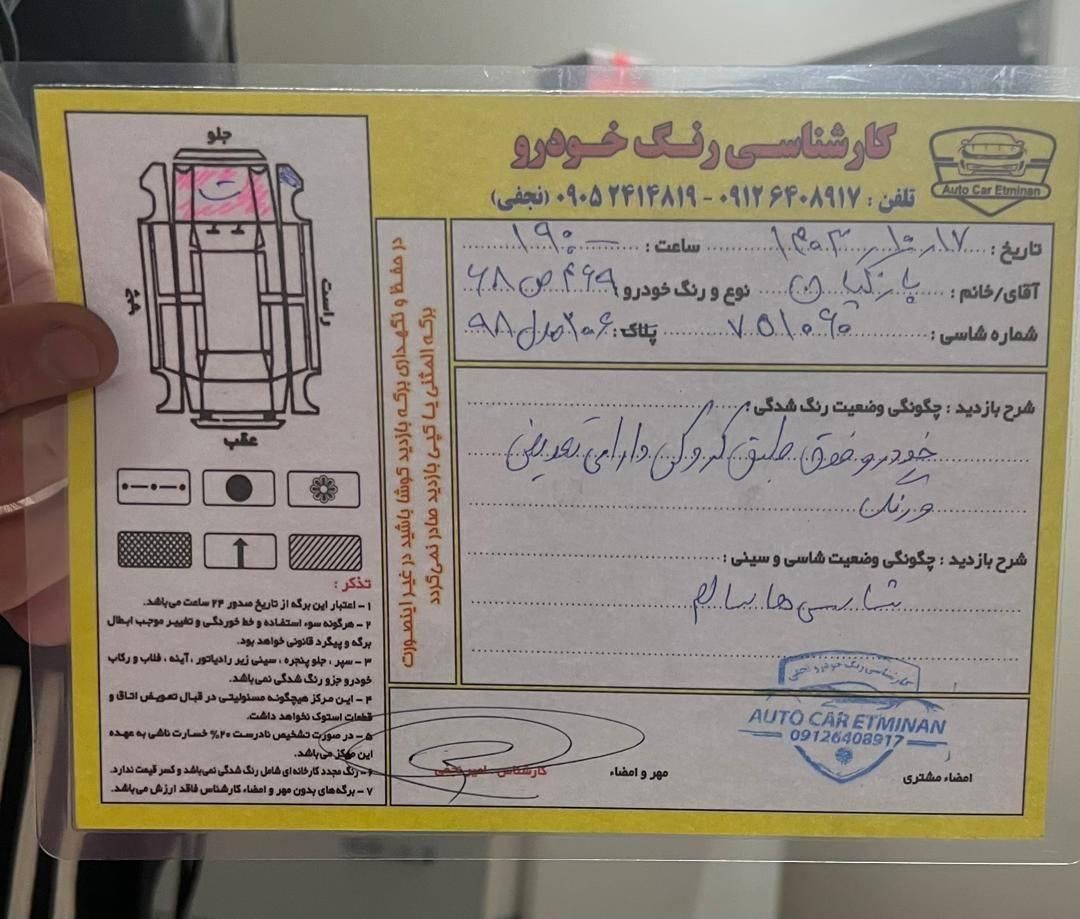 کارشناسی رنگ خودرو
Auto Car Etminan
تلفن : ۰۹۱۲۶۴۰۸۹۱۷ - ۰۹۰۵۲۴۱۴۸۱۹ (نجفی)
تاریخ : ۱۴۰۳/۱۰/۱۷ ساعت : ۱۹:۰۰
آقای/خانم : نوع و رنگ خودرو ۴۶۹ ص ۶۸
شماره شاسی : ۷۵۱۰۶۰ پلاک : ۲۰۶ مدل ۹۸
شرح بازدید : چگونگی وضعیت رنگ شدگی :
خودرو فوق طبق کروکی دارای تعویض
و رنگ
شرح بازدید : چگونگی وضعیت شاسی و سینی :
شاسی ها سالم
کارشناسی رنگ خودرو نجفی
AUTO CAR ETMINAN
09126408917
امضاء مشتری
مهر و امضاء
کارشناس امیر نجفی
در حفظ و نگهداری برگه بازدید کوشا باشید در غیر اینصورت
برگه المثنی یا کپی بازدید صادر نمی‌گردد
جلو
ت
راست
چپ
عقب
تذکر :
۱ – اعتبار این برگه از تاریخ صدور ۲۴ ساعت می‌باشد.
۲ – هرگونه سوء استفاده و خط خوردگی و تغییر موجب ابطال
برگه و پیگرد قانونی خواهد بود.
۳ – سپر ، جلو پنجره ، سینی زیر رادیاتور ، آینه ، قلاب و رکاب
خودرو جزو رنگ شدگی نمی‌باشد.
۴ – این مرکز هیچگونه مسئولیتی در قبال تعویض اتاق و
قطعات استوک نخواهد داشت.
۵ – در صورت تشخیص نادرست ۲۰% خسارت ناشی به عهده
این مرکز می‌باشد.
۶ – رنگ مجدد کارخانه‌ای شامل رنگ شدگی نمی‌باشد و کسر قیمت ندارد.
۷ – برگه‌های بدون مهر و امضاء کارشناس فاقد ارزش می‌باشد.